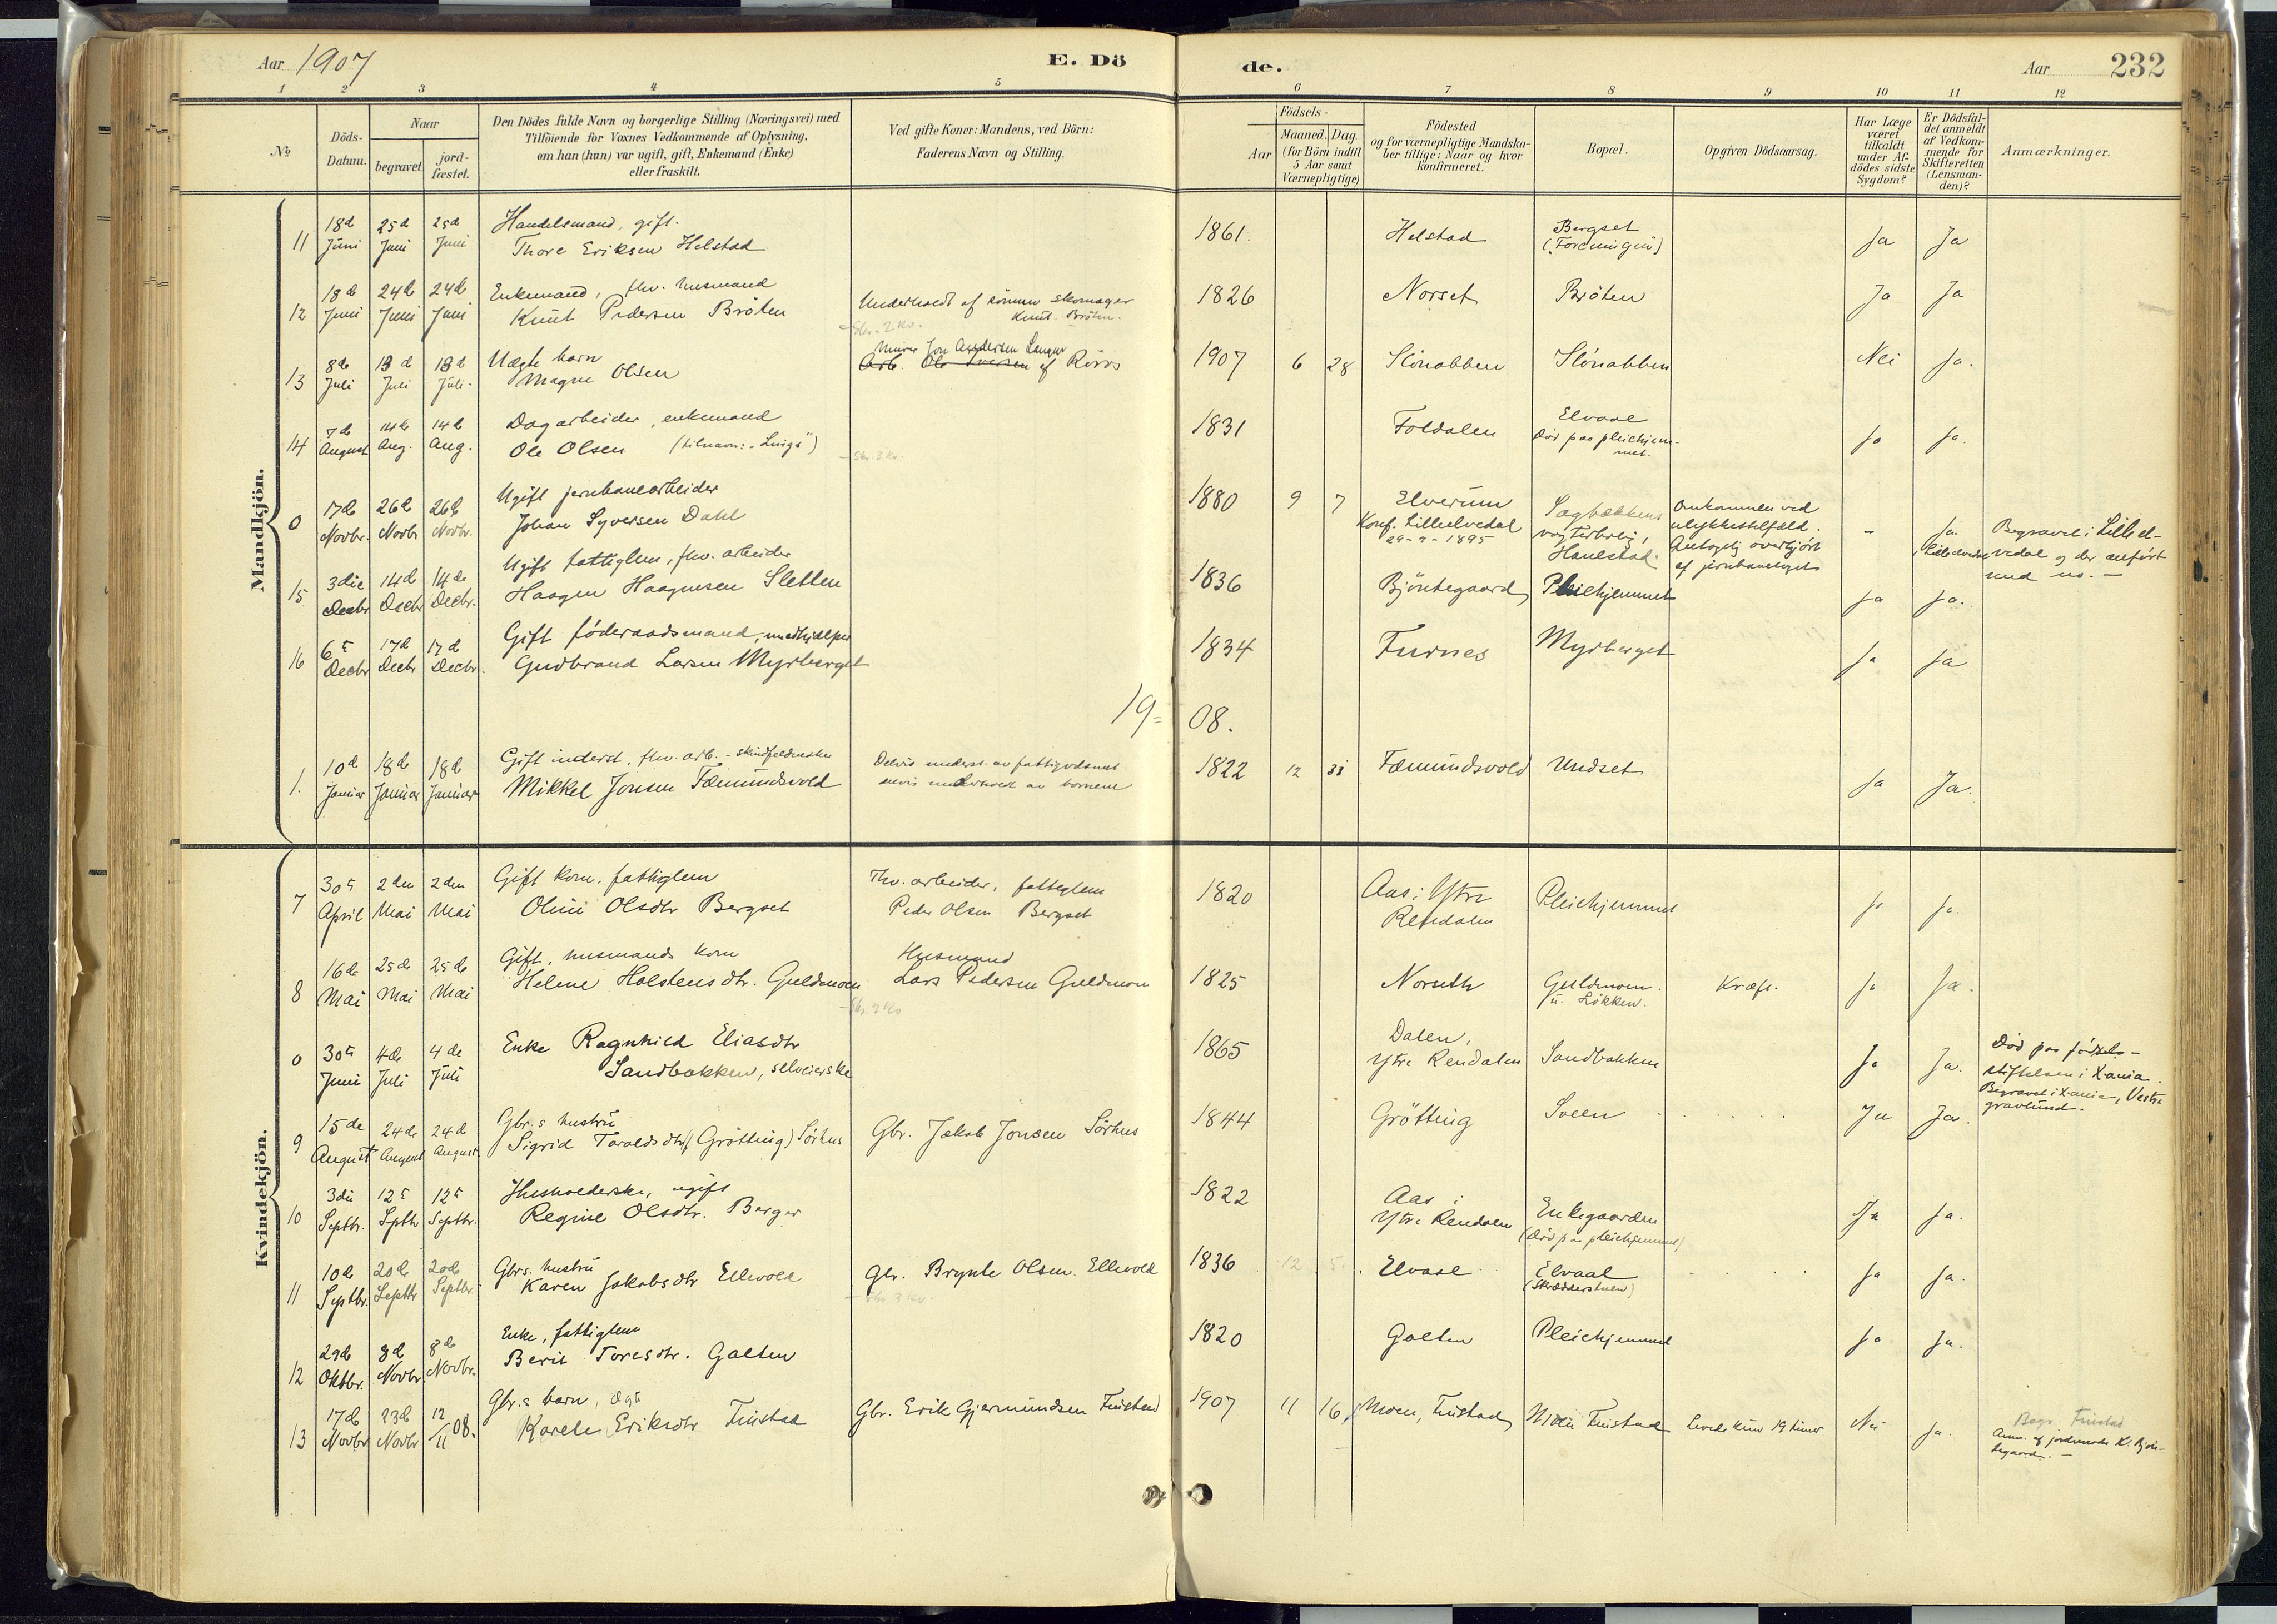 Aar 1907
E. Dö
de.
Aar 232
1 2 3 4 5 6 7 8 9 10 11 12
No
Döds-
Datum.
Naar
begravet
jord-
fæstet.
Den Dödes fulde Navn og borgerlige Stilling (Næringsvei) med
Tilföiende for Voxnes Vedkommende af Oplysning,
om han (hun) var ugift, gift, Enkemand (Enke)
eller fraskilt.
Ved gifte Koner: Mandens, ved Börn:
Faderens Navn og Stilling.
Födsels-
Aar
Maaned. Dag.
(for Börn indtil
5 Aar samt
Værnepligtige)
Födested
og for værnepligtige Mandska-
ber tillige: Naar og hvor
konfirmeret.
Bopæl.
Opgiven Dödsaarsag.
Har Læge
været
tilkaldt
under Af-
dödes sidste
Sygdom?
Er Dödsfal-
det anmeldt
af Vedkom-
mende for
Skifteretten
(Lensman-
den)?
Anmærkninger.
Mandkjön.
11 18de Juni 25de Juni 25de Juni
Handelsmand, gift.
Thore Eriksen Helstad
1861. Helstad Bergset
(Foreningen)
Ja Ja
12 18de Juni 24de Juni 24de Juni
Enkemand, fhv. husmand
Knut Pedersen Bröten
Underholdt af sönnen skomager
Knut Bröten.
1826 Norset Bröten Ja Ja
13 8de Juli 13de Juli 13de Juli.
Uægte barn
Magne Olsen
Murer Jon Andersen
Arb. Ole Iversen af Röros
1907 6 28 Slönabben Slönabben Nei Ja.
14 7de August 14de Aug. 14de Aug.
Dagarbeider, enkemand
Ole Olsen (tilnavn: "Luigs")
Skr. 3 Kr.
1831 Foldalen Elvaal
död paa pleiehjem-
met.
Ja Ja.
0 17de Novbr. 26de Novbr 26de Novbr.
Ugift jernbanearbeider
Johan Syversen Dahl
1880 9 7 Elverum
Konf. Lilleelvedal
1895
Sagbækkens
vogterbolig,
Hanestad.
Omkommen ved
ulykkestilfæld.
Antagelig overkjört
af jernbanetoget
- Ja.
i Lilleelvedal
Begravet i Lilleel-
vedal og der anfört
med no. -
15 3die Decbr 14de Decbr 14de Decbr.
Ugift fattiglem, fhv. arbeider
Haagen Haagensen Sletten
1836 Bjöntegaard Pleiehjemmet Ja Ja.
16 6te Decbr 17de Decbr 17de Decbr.
Gift föderaadsmand, medhjælper
Gudbrand Larsen Myrberget
1834 Furnes Myrberget Ja Ja
19= 08.
1. 10de Januar 18de Januar 18de Januar
Gift inderst, fhv. arb.
Mikkel Jonsen Fæmundsvold
Delvis underst. av fattigvæsenet
delvis underholdt av barnene
1822 12 31 Fæmundsvold Undset Ja Ja.
Kvindekjön.
7 30te April 2den Mai 2den Mai
Gift kone, fattiglem
Oline Olsdtr Bergset
Fhv. arbeider, fattiglem
Peder Olsen Bergset
1820 Aas i Ytre
Rendalen
Pleiehjemmet Ja Ja.
8 16de Mai 25de Mai 25de Mai
Gift, husmands kone
Helene Holstensdtr. Guldmoen
Husmand
Lars Pedersen Guldmoen
1825 Norseth Guldmoen.
u. Lökken.
Kræft. Ja Ja.
0 30te Juni 4de Juli 4de Juli
Enke Ragnhild Eliasdtr
Sandbakken, selveierske
1865 Dalen,
Ytre Rendalen Sandbakken Ja Ja.
Död paa födsels-
stiftelsen i X.ania.
Begravet i X.ania, Vestre
gravlund.
9 15de August 24de August 24de August
Gbr.s hustru
Sigrid Taraldsdtr (Grötting) Sörhus
Gbr. Jakob Jonsen Sörhus
1844 Grötting Sveen Ja Ja.
10 3die Septbr. 12te Sptbr 12te Septbr.
Husholderske, ugift
Regine Olsdtr. Berger
1822 Aas i
Ytre Rendalen Enkegaarden
(Död paa pleiehjemmet)
Ja Ja.
11 10de Septbr. 20de Septbr 20de Septbr.
Gbrs. hustru
Karen Jakobsdtr Ellevold
Gbr. Brynte Olsen Ellevold
1836 12 5 Elvaal Elvaal
(Skrædderstuen)
Ja Ja.
12 29de Oktbr. 8de Novbr. 8de Novbr.
Enke, fattiglem
Berit Toresdtr. Galten
1820 Galten Pleiehjemmet Ja Ja.
13 17de Novbr 23de Novbr 12/11 08.
Gbr.s barn, ægte
Karele Eriksdtr Finstad
Gbr. Erik Gjermundsen Finstad
1907 11 16 Moen, Finstad Moen Finstad Levede kun 19 timer Nei Ja.
Finstad
Anm. af jordmoder K. Bjön-
tegaard. -